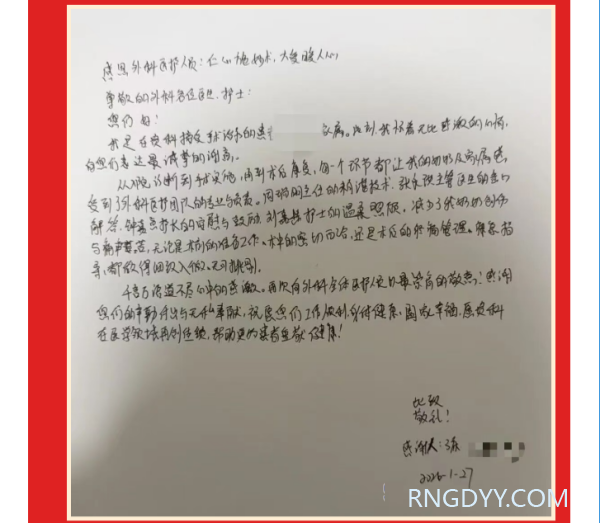 感恩外科医护人员:仁心施妙术,大爱暖人心
尊敬的外科各位医生、护士:
您们好!
我是在贵科接受手术治疗的患 家属。此刻,我怀着无比感激的心情,
向您们表达最诚挚的谢意。
从入院诊断到手术实施,再到术后康复,每一个环节都让我的奶奶及家属感
受到了外科医护团队的专业与负责。周 主任的精湛技术,张 医生的
解答,钟 护长的 与鼓励 刘 护士的温柔照顾,减少了我奶奶创伤
与病痛 ,无论是术前的准备工作、术中的密切配合,还是术后的 管理、康复指
导,都做得细致入微、无可挑剔。
千言万语道不尽心中的感激。再次向外科全体医护人员致以最崇高的敬意!感谢
您们的辛勤付出与无私奉献,祝愿您们工作顺利,身体健康,阖家幸福,愿贵科
在医学领域再创佳绩,帮助更多患者重获健康!
此致
敬礼!
感谢人:
2026-1-27
RNGDYY.COM